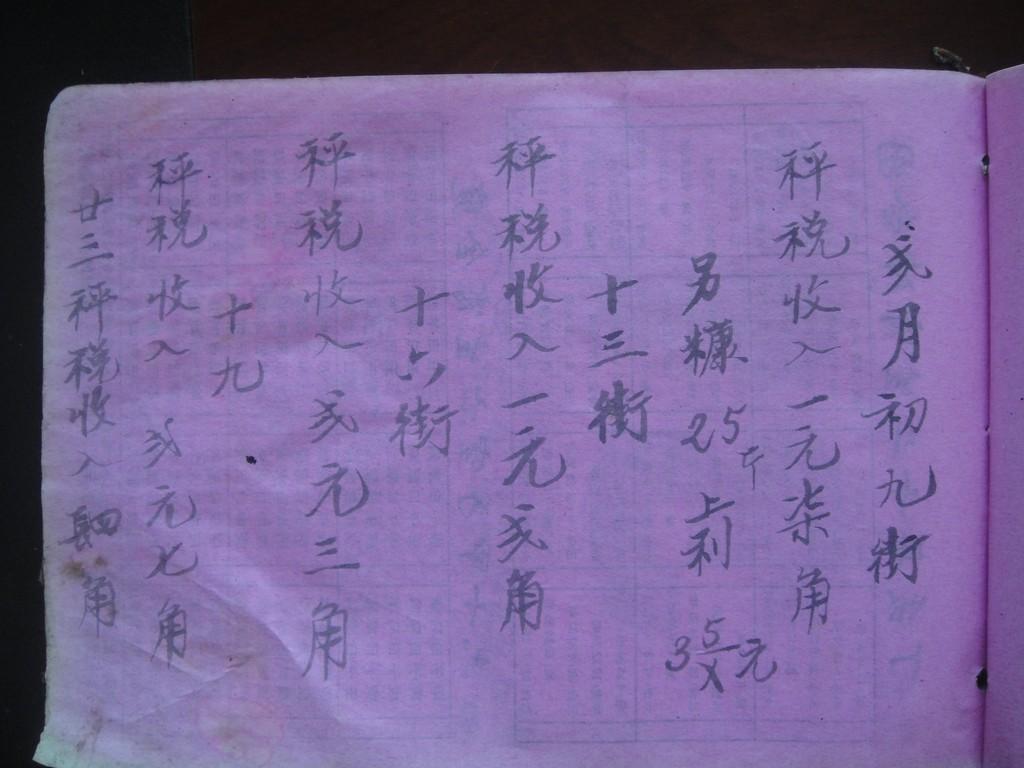 弍月初九街
秤税收入一元柒角
另糠25斤 上利 3元
十三街
秤税收入一元弍角
十六街
秤税收入弍元三角
十九
秤税收入弍元七角
廿三秤税收入四角